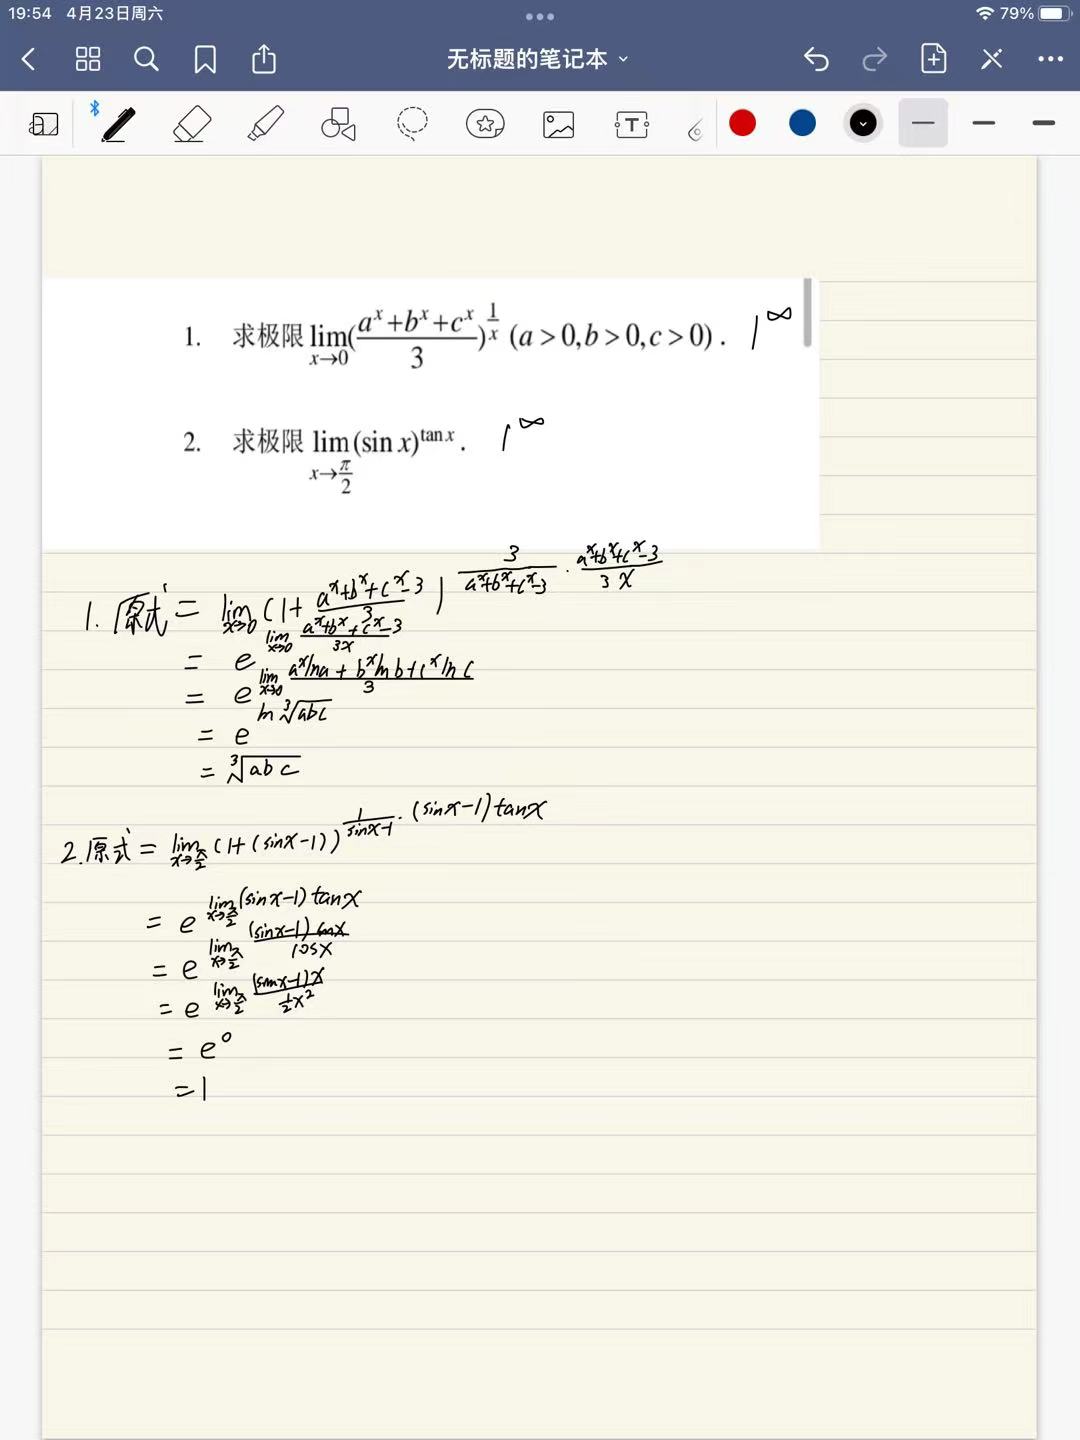 19:54 4月23日周六
79%
无标题的笔记本
T
1. 求极限 lim_{x→0} ((a^x+b^x+c^x)/3)^{1/x} (a>0,b>0,c>0). 1^∞
2. 求极限 lim_{x→π/2} (sin x)^{tan x}. 1^∞
1. 原式 = lim_{x→0} (1+ (a^x+b^x+c^x-3)/3)^{3/(a^x+b^x+c^x-3) · (a^x+b^x+c^x-3)/(3x)}
= e^{lim_{x→0} (a^x+b^x+c^x-3)/(3x)}
= e^{lim_{x→0} (a^x ln a + b^x ln b + c^x ln c)/3}
= e^{ln ∛(abc)}
= ∛(abc)
2. 原式 = lim_{x→π/2} (1+(sinx-1))^{1/(sinx-1) · (sinx-1)tanx}
= e^{lim_{x→π/2} (sinx-1)tanx}
= e^{lim_{x→π/2} (sinx-1)sinx/cosx}
= e^{lim_{x→π/2} (sinx-1)x/(½x²)}
= e^0
=1